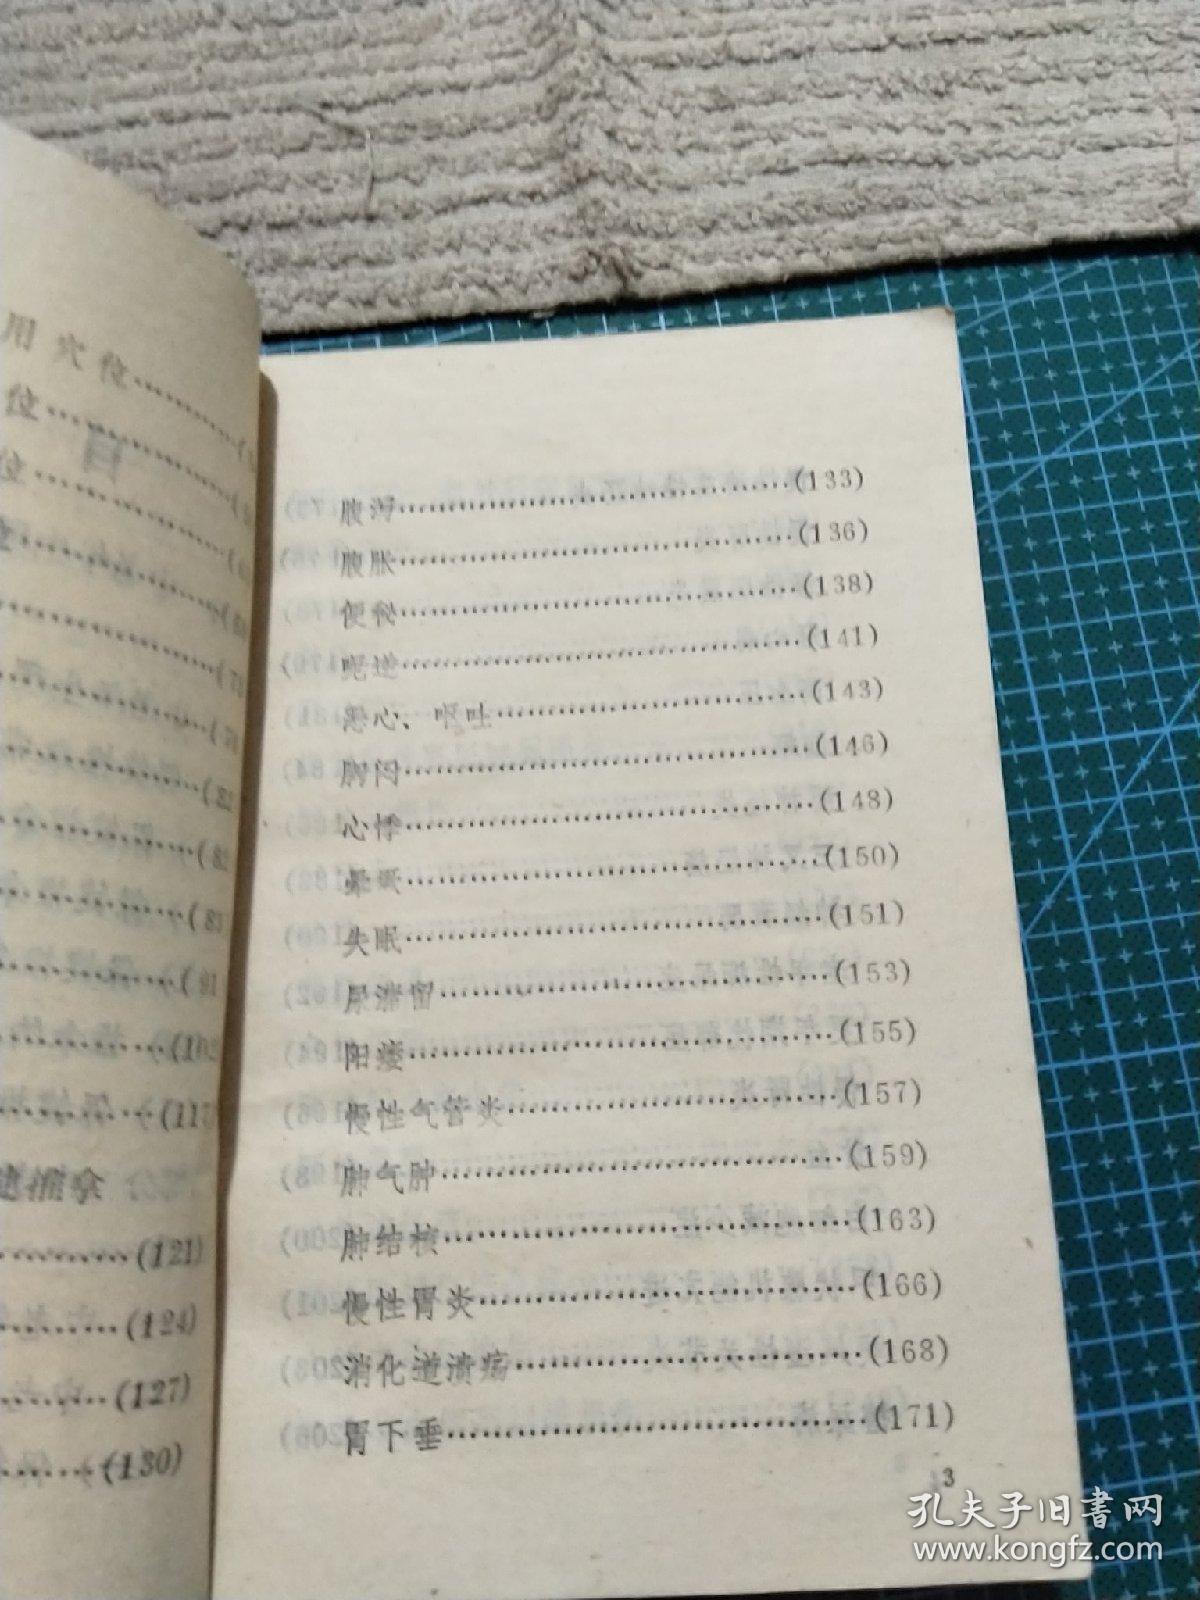 用穴位
位
位
(121)
(124)
(127)
(130)
腹泻……(133)
腹胀……(136)
便秘……(138)
呃逆……(141)
恶心、呕吐……(143)
胸闷……(146)
心悸……(148)
晕厥……(150)
失眠……(151)
尿潴留……(153)
阳痿……(155)
慢性气管炎……(157)
肺气肿……(159)
肺结核……(163)
慢性胃炎……(166)
消化道溃疡……(168)
胃下垂……(171)
3
孔夫子旧书网
www.kongfz.com